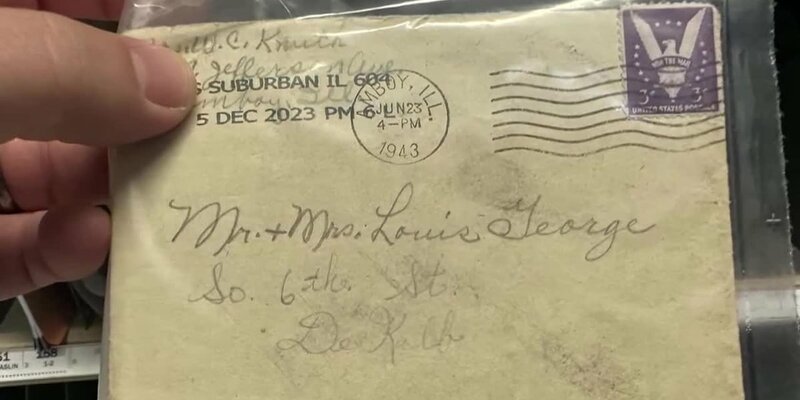 C. Knuth
Jefferson Ave
SUBURBAN IL 604
5 DEC 2023 PM 6 L
AMBOY, ILL.
JUN 23
4-PM
1943
WIN THE WAR
3¢ 3¢
UNITED STATES POSTAGE
Mr. + Mrs. Louis George
So. 6th St.
De Kalb
51 158
ASLIN 3 1-2